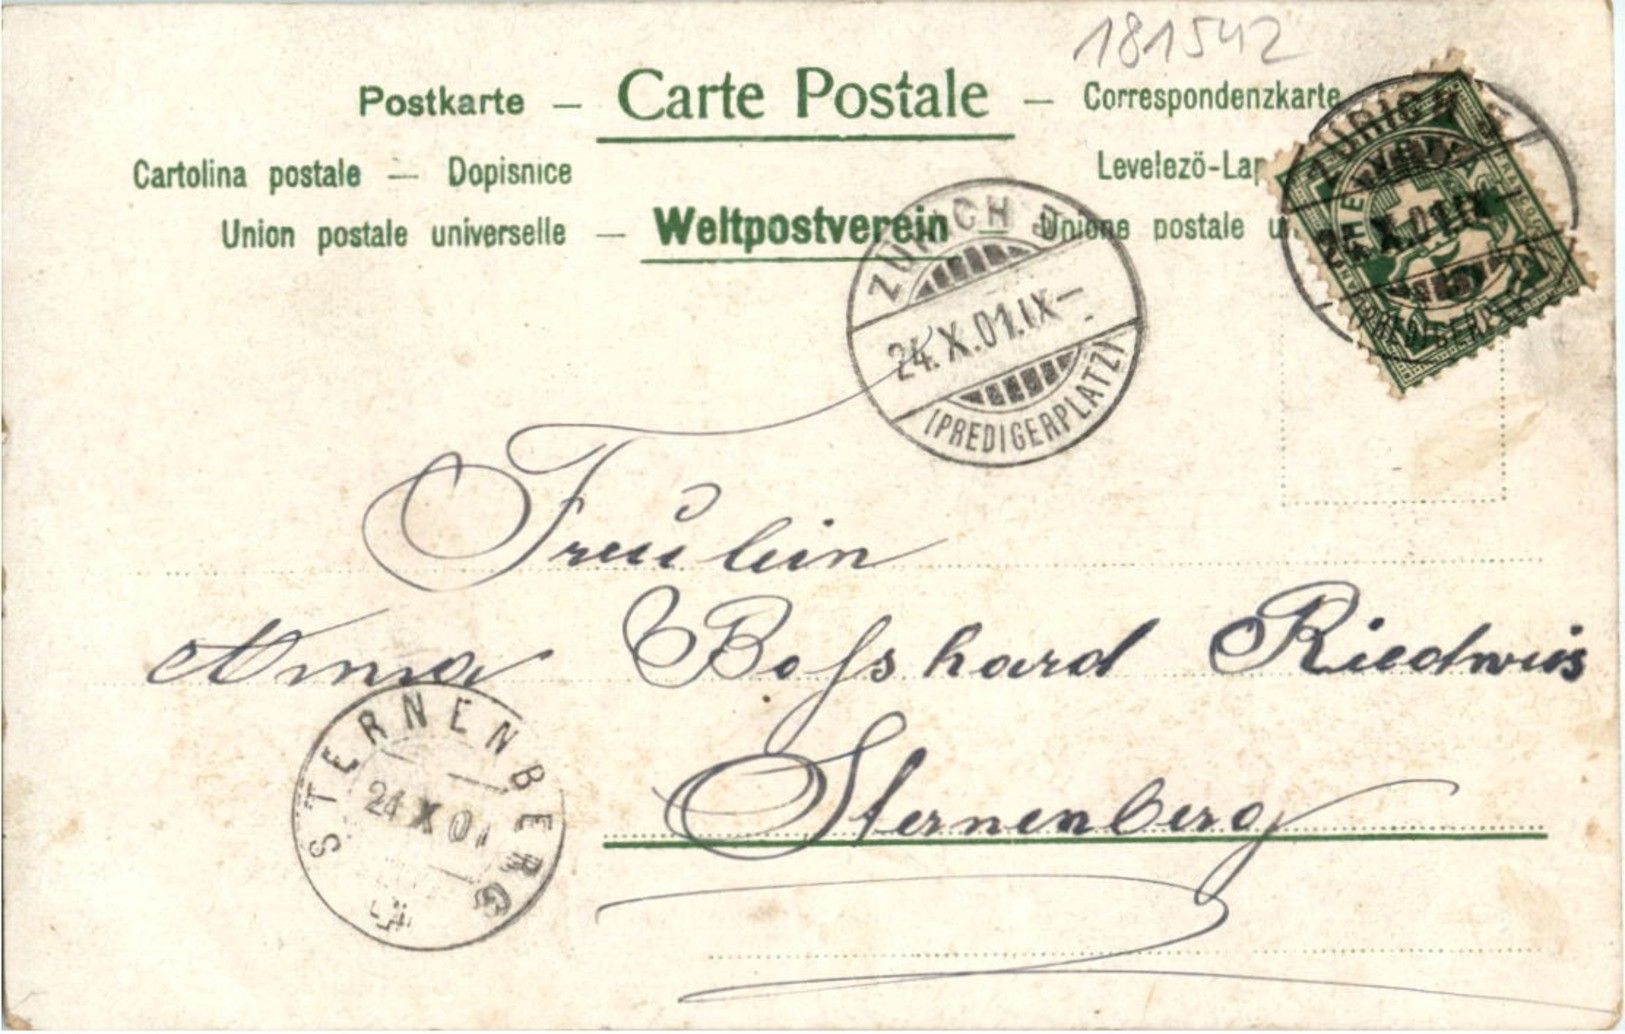 181542
Postkarte — Carte Postale — Correspondenzkarte
Cartolina postale — Dopisnice
Levelező-Lap
Union postale universelle — Weltpostverein — Unione postale u
ZÜRICH
24.X.01.IX–
(PREDIGERPLATZ)
ZÜRICH
X.01.IX
(PREDIGERPL
Freulein
Anna Boſshard Riedwies
Sternenberg
STERNENBERG
24 X 01